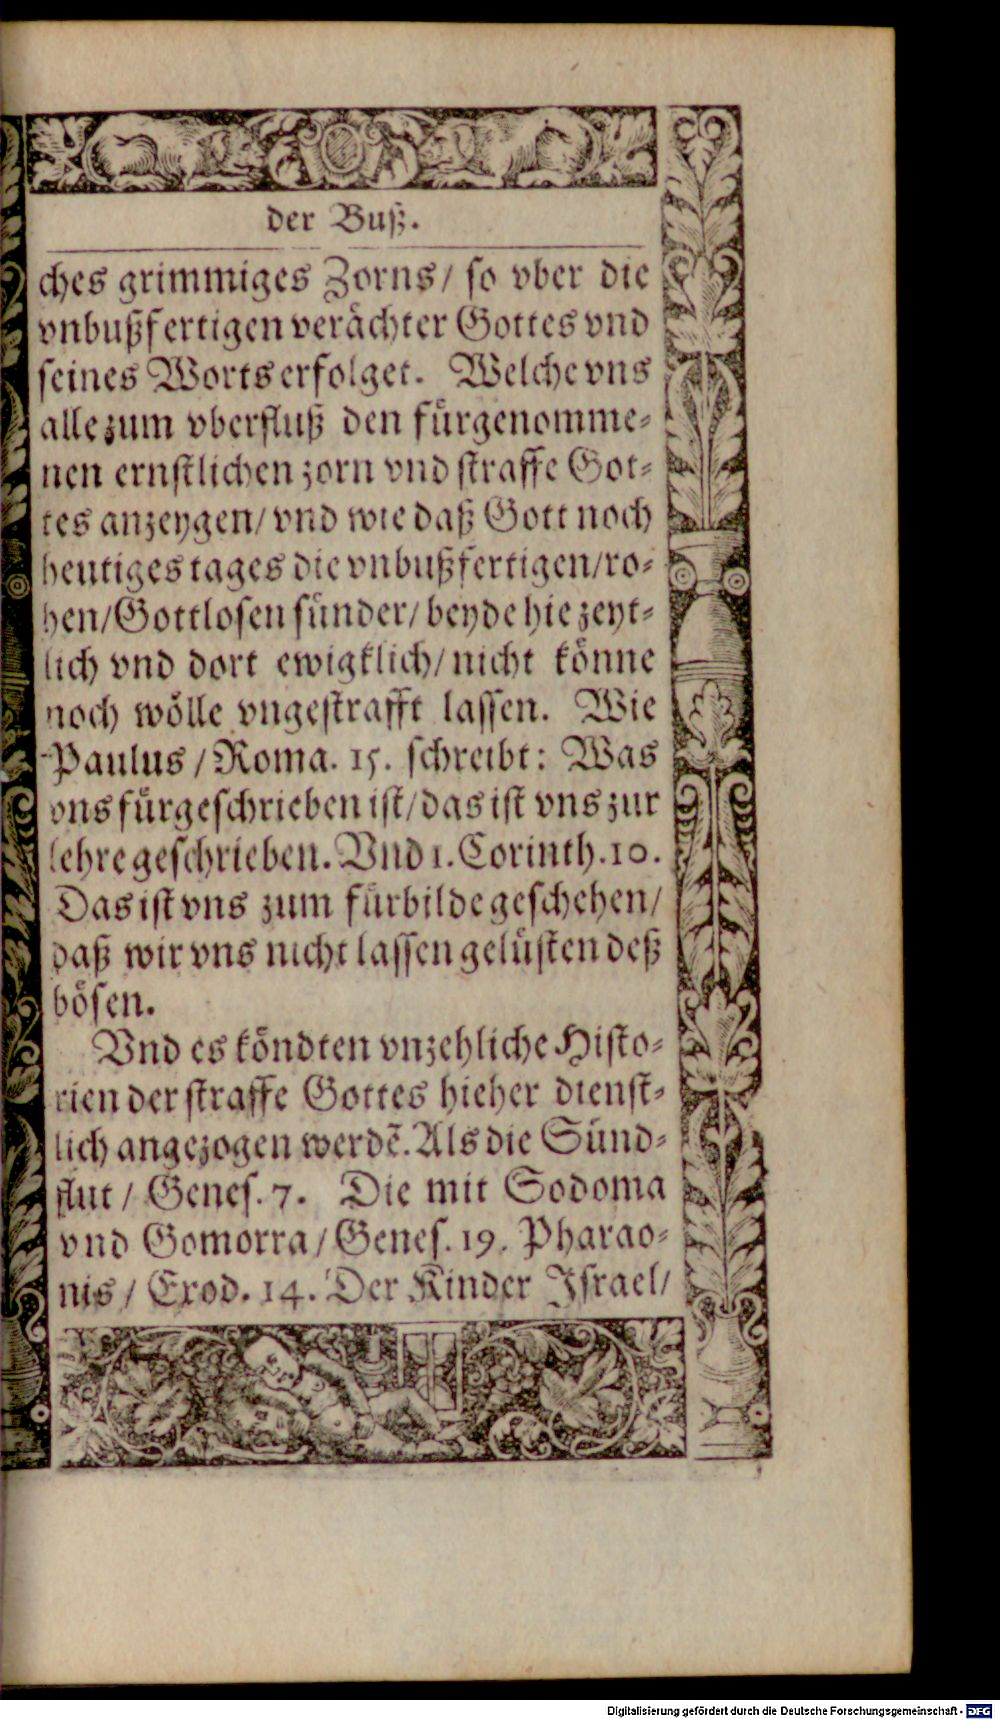 der Buß.
ches grimmiges Zorns/ so vber die
vnbußfertigen verächter Gottes vnd
seines Worts erfolget. Welche vns
alle zum vberfluß den fürgenomme-
nen ernstlichen zorn vnd straffe Got-
tes anzeygen/ vnd wie daß Gott noch
heutiges tages die vnbußfertigen/ ro-
hen/ Gottlosen sünder/ beyde hie zeyt-
lich vnd dort ewigklich/ nicht könne
noch wölle vngestrafft lassen. Wie
Paulus/ Roma. 15. schreibt: Was
vns fürgeschrieben ist/ das ist vns zur
lehre geschrieben. Vnd 1. Corinth. 10.
Das ist vns zum fürbilde geschehen/
daß wir vns nicht lassen gelüsten deß
bösen.
Vnd es köndten vnzehliche Histo-
rien der straffe Gottes hieher dienst-
lich angezogen werdẽ. Als die Sünd-
flut/ Genes. 7. Die mit Sodoma
vnd Gomorra/ Genes. 19. Pharao-
nis/ Exod. 14. Der Kinder Israel/
Digitalisierung gefördert durch die Deutsche Forschungsgemeinschaft - DFG